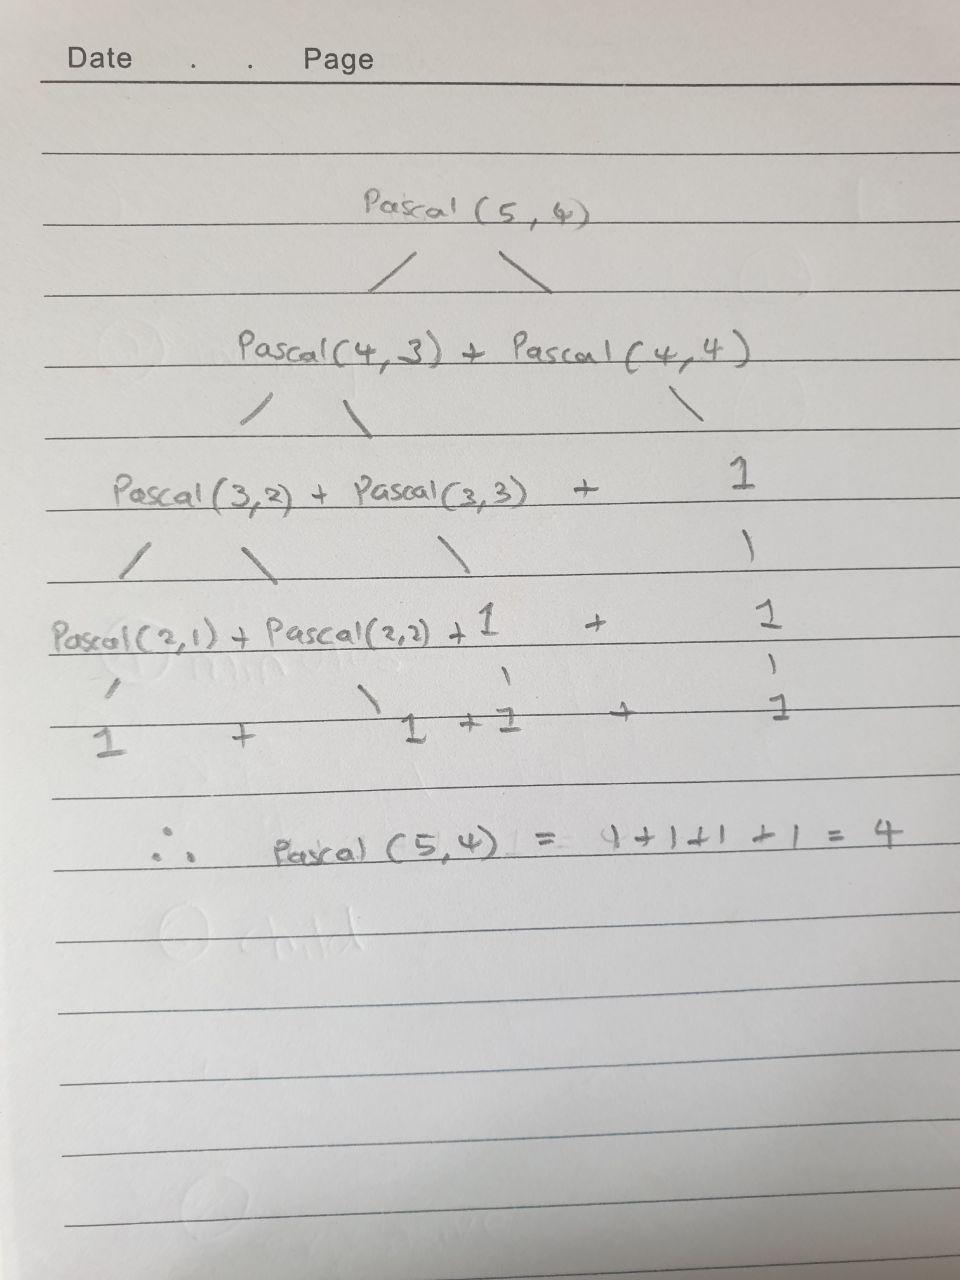 Date . . Page
Pascal (5, 4)
Pascal(4, 3) + Pascal (4, 4)
Pascal (3,2) + Pascal(3,3) + 1
Pascal(2,1) + Pascal(2,2) + 1 + 1
1 + 1 + 1 + 1
∴ Pascal (5,4) = 1+1+1+1 = 4